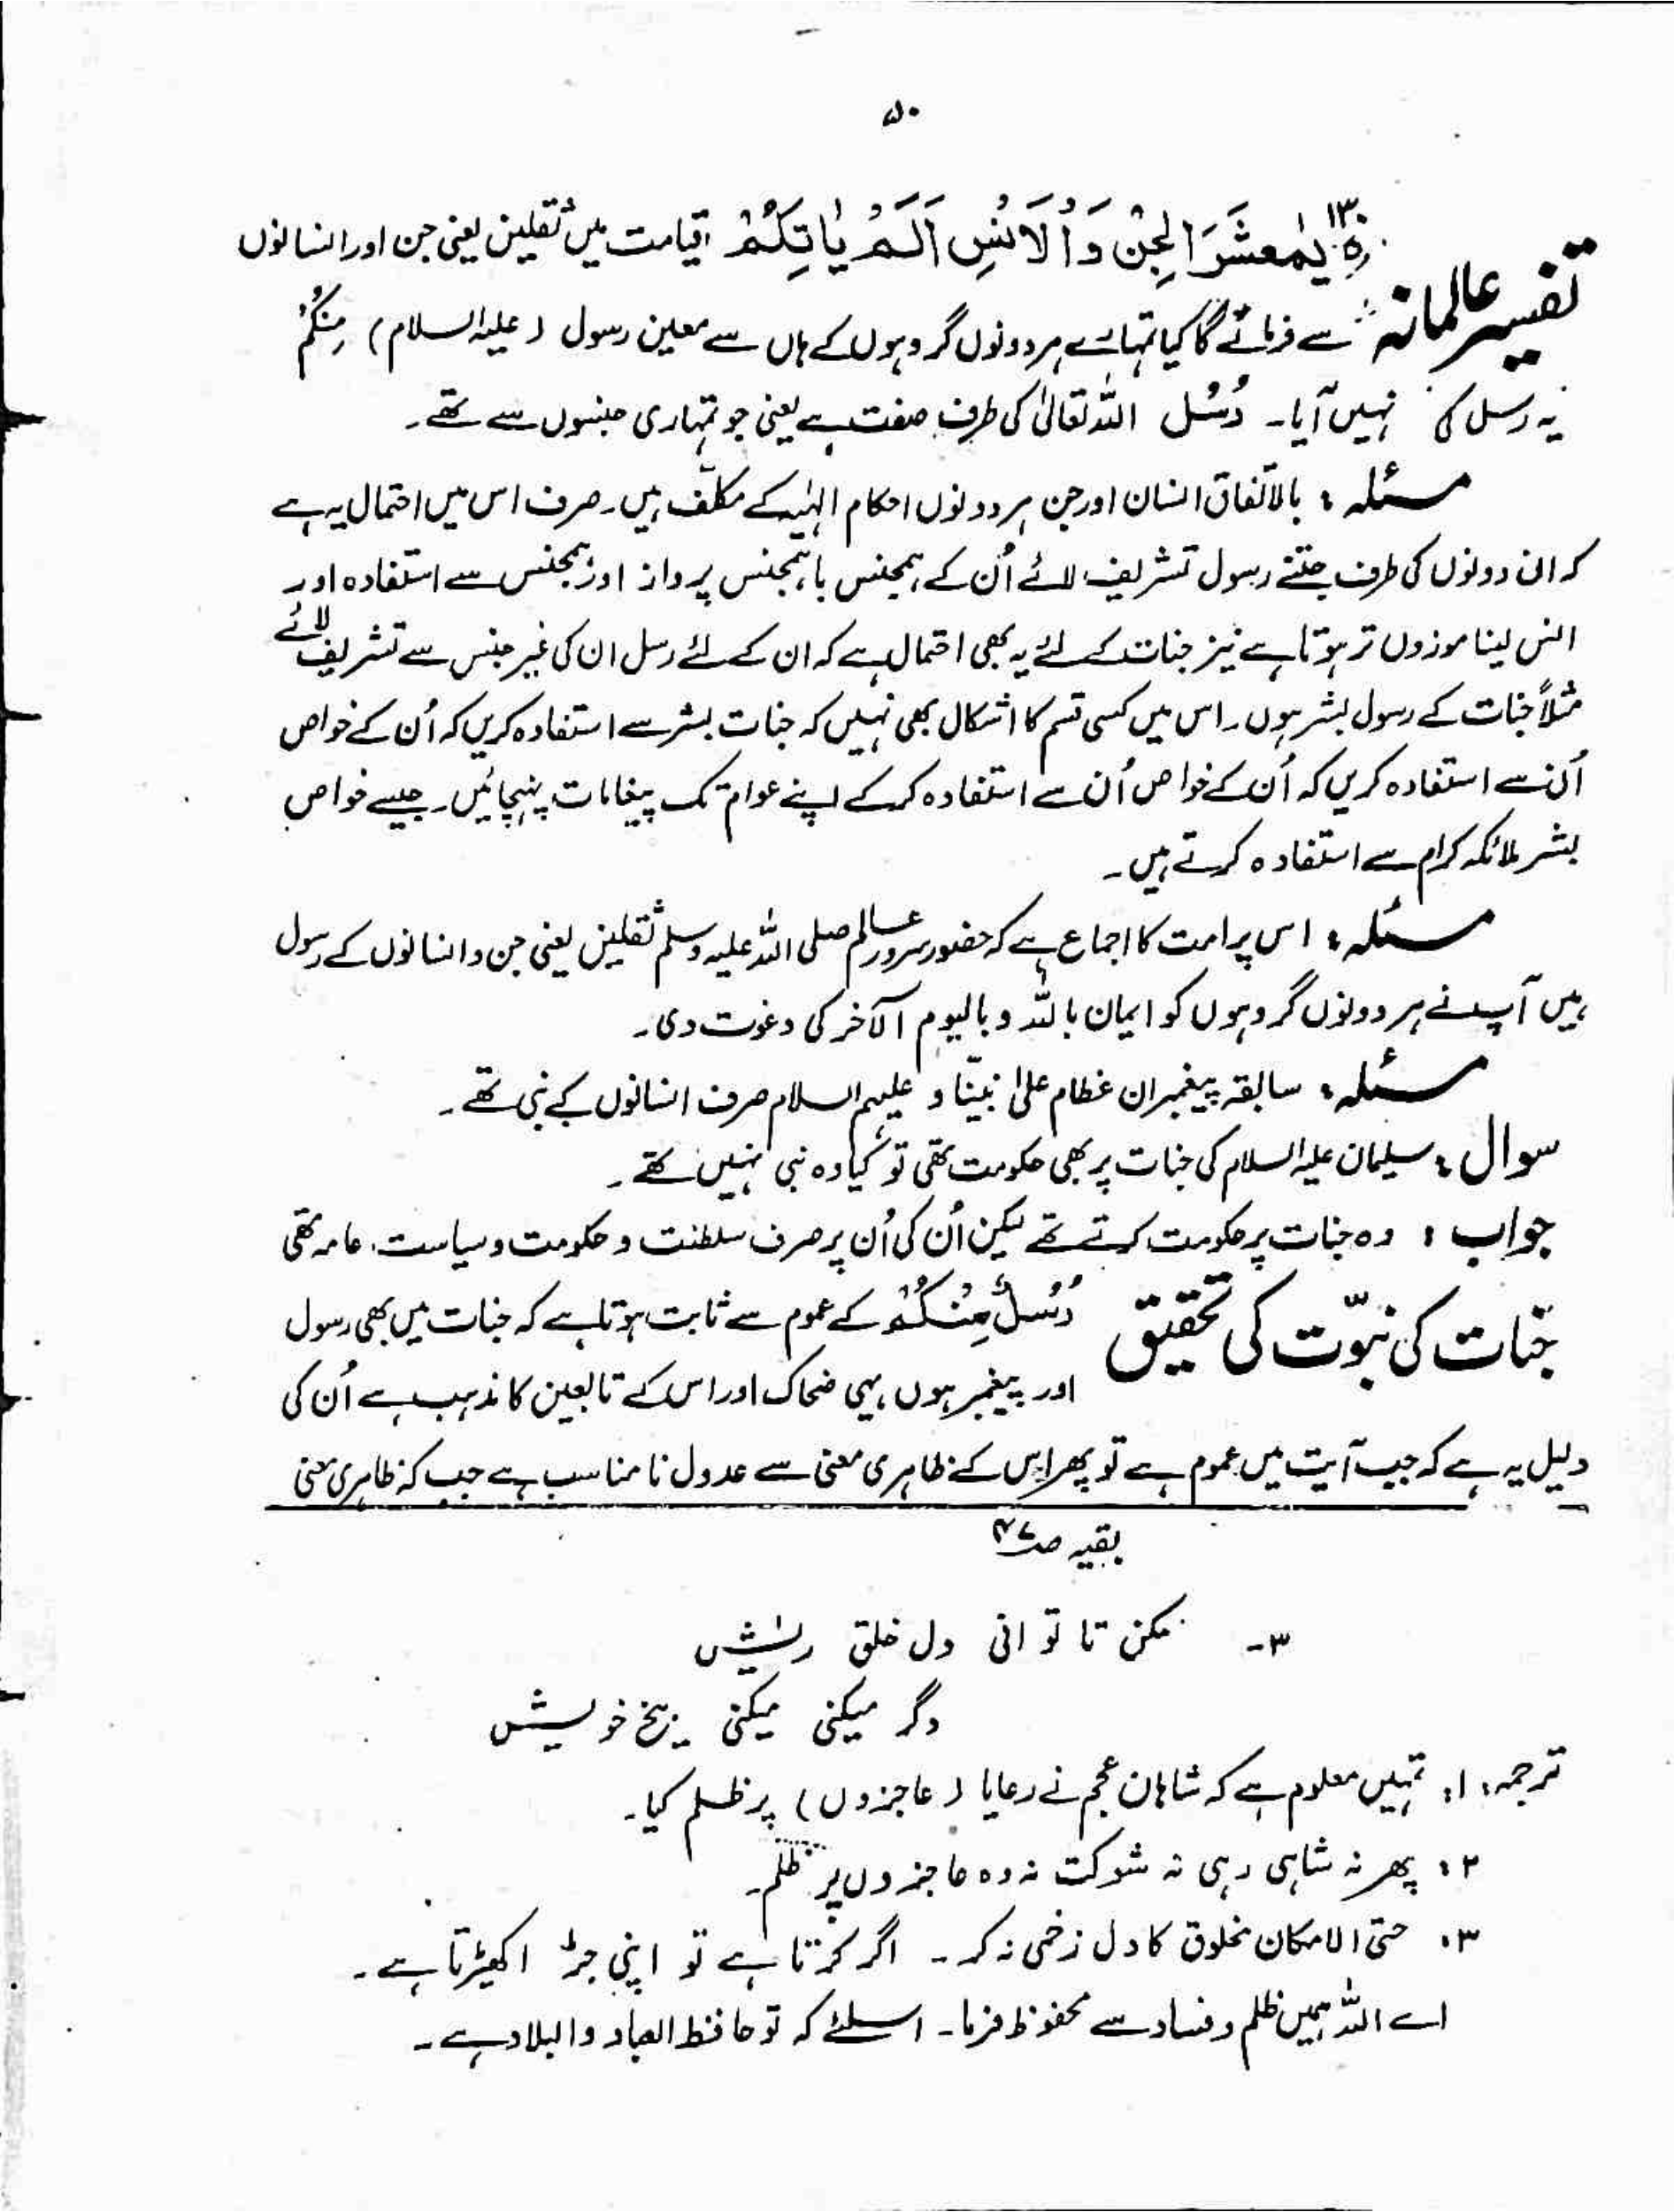 ۵۰
تفسیر عالمانہ
۱۳۰ یٰمَعْشَرَ الْجِنِّ وَالْاِنْسِ اَلَمْ یَاْتِکُمْ قیامت میں ثقلین یعنی جن اور انسانوں
سے فرمائے گا کیا تمہارے ہر دونوں گروہوں کے ہاں سے معین رسول (علیہ السلام) مِنْکُمْ
یہ رسل کی نہیں آیا۔ رُسُل اللہ تعالیٰ کی طرف صفت ہے یعنی جو تمہاری جنسوں سے تھے۔
مسئلہ: بالاتفاق انسان اور جن ہر دونوں احکام الٰہیہ کے مکلّف ہیں۔ صرف اس میں احتمال یہ ہے
کہ ان دونوں کی طرف جتنے رسول تشریف لائے اُن کے ہمجنس باہمجنس پرواز اور ہمجنس سے استفادہ اور
انس لینا موزوں تر ہوتا ہے نیز جنات کے لئے یہ بھی احتمال ہے کہ ان کے لئے رسل ان کی غیر جنس سے تشریف لائے
مثلاً جنات کے رسول بشر ہوں۔ اس میں کسی قسم کا اشکال بھی نہیں کہ جنات بشر سے استفادہ کریں کہ اُن کے خواص
اُن سے استفادہ کریں کہ اُن کے خواص اُن سے استفادہ کرکے اپنے عوام تک پیغامات پہنچائیں۔ جیسے خواص
بشر ملائکہ کرام سے استفادہ کرتے ہیں۔
مسئلہ: اس پر امت کا اجماع ہے کہ حضور سرور عالم صلی اللہ علیہ وسلم ثقلین یعنی جن و انسانوں کے رسول
ہیں آپ نے ہر دونوں گروہوں کو ایمان باللہ و بالیوم الآخر کی دعوت دی۔
مسئلہ: سابقہ پیغمبران عظام علیٰ نبینا و علیہم السلام صرف انسانوں کے نبی تھے۔
سوال: سلیمان علیہ السلام کی جنات پر بھی حکومت تھی تو کیا وہ نبی نہیں تھے۔
جواب: وہ جنات پر حکومت کرتے تھے لیکن اُن کی اُن پر صرف سلطنت و حکومت و سیاست عامہ تھی
جنات کی نبوّت کی تحقیق
رُسُلٌ مِّنْکُمْ کے عموم سے ثابت ہوتا ہے کہ جنات میں بھی رسول
اور پیغمبر ہوں یہی ضحاک اور اس کے تابعین کا مذہب ہے اُن کی
دلیل یہ ہے کہ جب آیت میں عموم ہے تو پھر اس کے ظاہری معنی سے عدول نامناسب ہے جب کہ ظاہری معنی
بقیہ صـ۴۷
۳۔ مکن تا توانی دل خلق ریش
دگر میکنی میکنی بیخ خویش
ترجمہ: ۱: تمہیں معلوم ہے کہ شاہان عجم نے رعایا (عاجزوں) پر ظلم کیا۔
۲: پھر نہ شاہی رہی نہ شوکت نہ وہ عاجزوں پر ظلم۔
۳: حتی الامکان مخلوق کا دل زخمی نہ کر۔ اگر کرتا ہے تو اپنی جڑ اکھیڑتا ہے۔
اے اللہ ہمیں ظلم و فساد سے محفوظ فرما۔ اسلئے کہ تو حافظ العباد والبلاد ہے۔